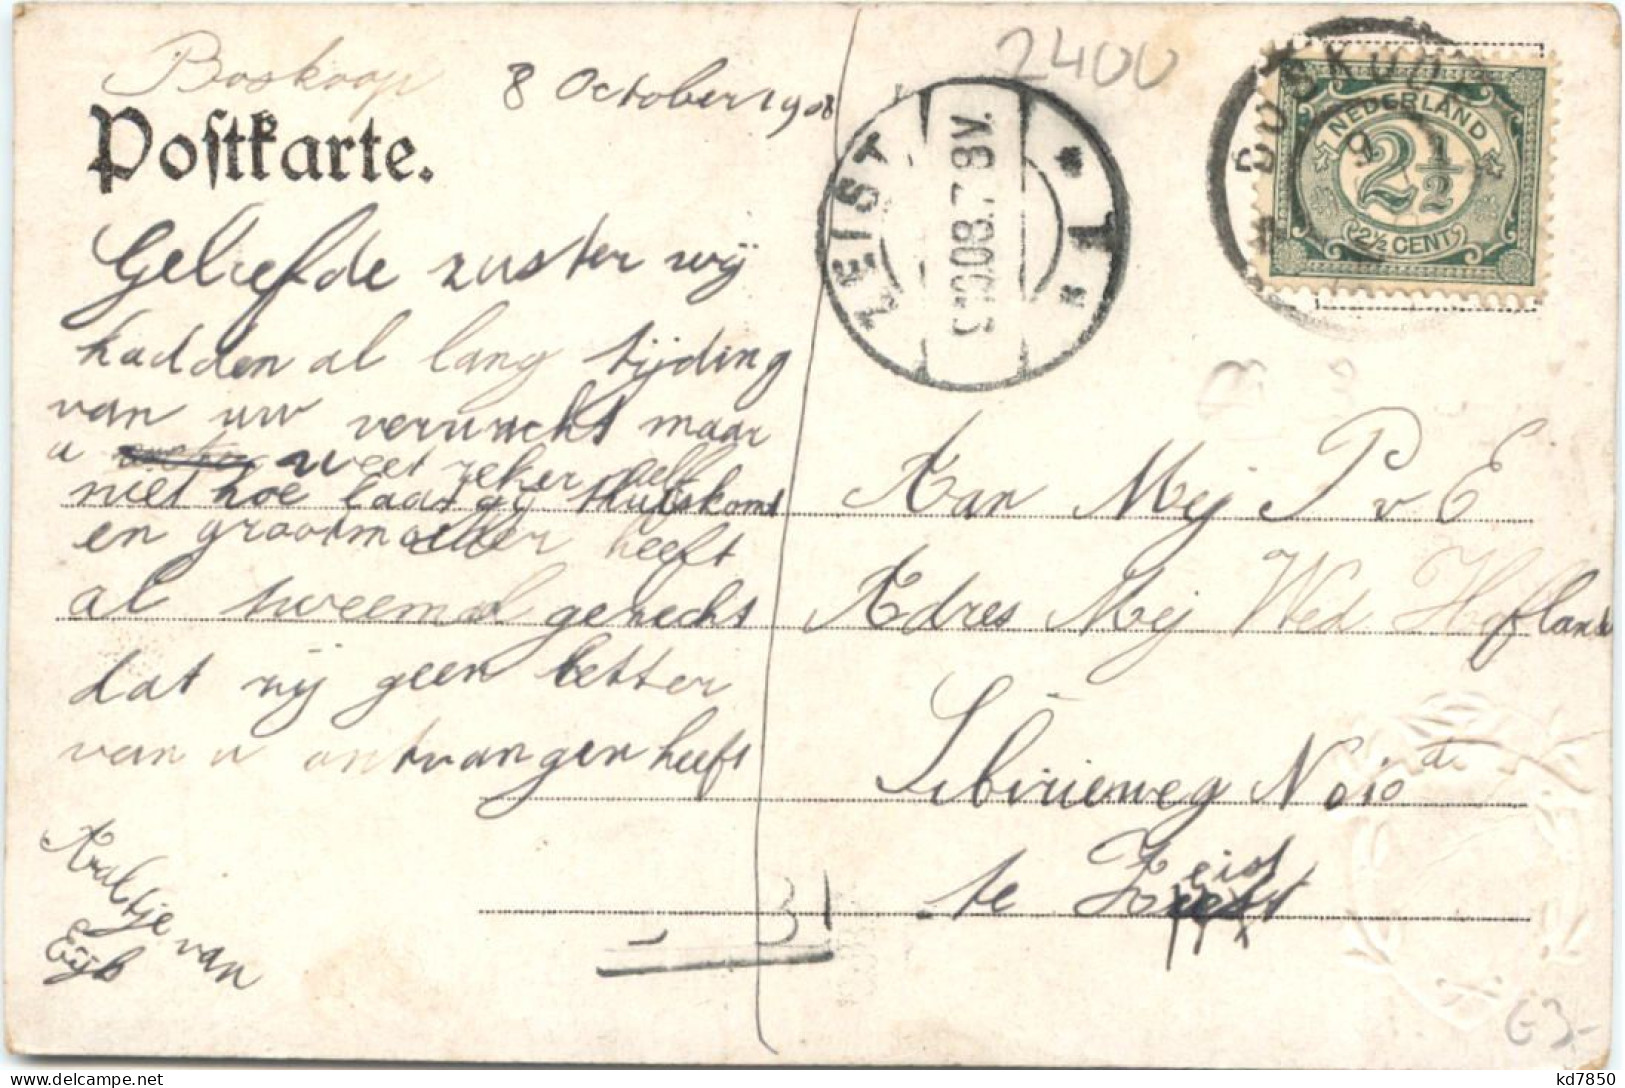 Boskoop 8 October 1908
2400
Postkarte.
Geliefde zuster wij
hadden al lang tijding
van uw verwacht maar
u weet zeker zelf
niet hoe laat gij thuiskomt
en grootmoeder heeft
al tweemal gezecht
dat zij geen letter
van u ontvangen heeft
Aaltje van
Eijk
ZEIST
9.10.08.7-8V.
* 1 *
BOSKOOP
NEDERLAND
2½
2½ CENT
Aan Mej P v E
Adres Mej Wed Hofland
Sibirieweg No 10
te Zeist
31
€3-
kd7850